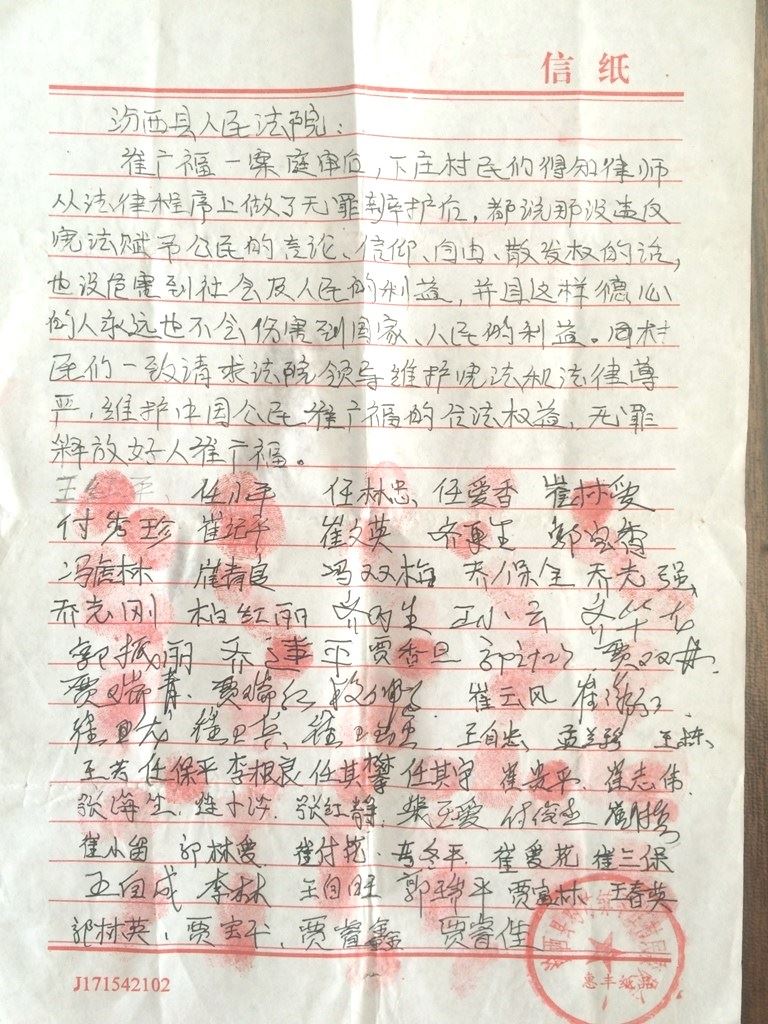 信纸
汾西县人民法院：
崔广福一案庭审后，下庄村民们得知律师
从法律程序上做了无罪辩护后，都说那没违反
宪法赋予公民的言论、信仰、自由、散发权的话，
也没危害到社会及人民的利益，并且这样德心
的人永远也不会伤害到国家、人民的利益。同村
民们一致请求法院领导维护宪法和法律尊
严，维护中国公民崔广福的合法权益，无罪
释放好人崔广福。
任小平 任林忠 任爱香 崔林爱
付秀珍 崔记平 崔文英 乔更生 郭宝香
冯虎林 崔青良 冯双梅 乔保全 乔志强
乔志刚 柏红丽 乔丙生 王小云
郭振丽 乔建平 贾香旦 贾双
贾瑞青 贾瑞红 崔云风 崔
崔卫兵 王自忠 孟兰珍 王
王芳 任保平 李根良 任其攀 任其宇 崔贵平 崔志伟
张海生 张红静
崔小留 郭林爱 崔付花 冬平 崔爱花 崔三保
王自成 李林 王自旺 郭瑞平 贾富林 王春英
郭林英 贾宝平 贾睿鑫 贾睿佳
J171542102
惠丰纸品